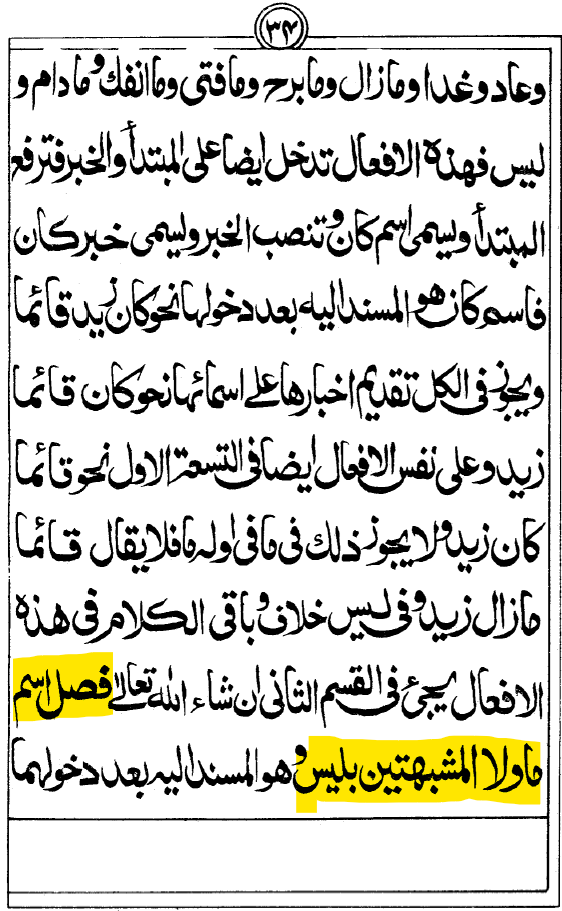 ۳۴
وعاد وغدا وما زال وما برح وما فتی وما انفك وما دام و
لیس فهذه الافعال تدخل ایضا علی المبتدأ والخبر فترفع
المبتدأ ویسمی اسم کان وتنصب الخبر ویسمی خبر کان
فاسم کان هو المسند الیه بعد دخولها نحو کان زید قائما
ویجوز فی الکل تقدیم اخبارها علے اسمائها نحو کان قائما
زید وعلی نفس الافعال ایضا فی التسعة الاول نحو قائما
کان زید ولا یجوز ذلك فی ما فی اوله ما فلا یقال قائما
ما زال زید وفی لیس خلاف وباقی الکلام فی هذه
الافعال یجیٔ فی القسم الثانی ان شاء الله تعالے فصل اسم
ما ولا المشبهتین بلیس وهو المسند الیه بعد دخولهما